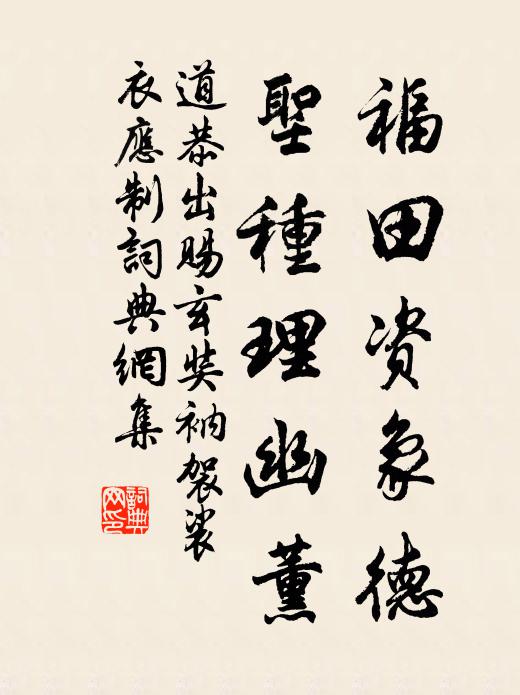 福田资象德
聖種理幽薰
道恭出賜玄奘衲袈裟
衣應制詞典網集
詞典
网印